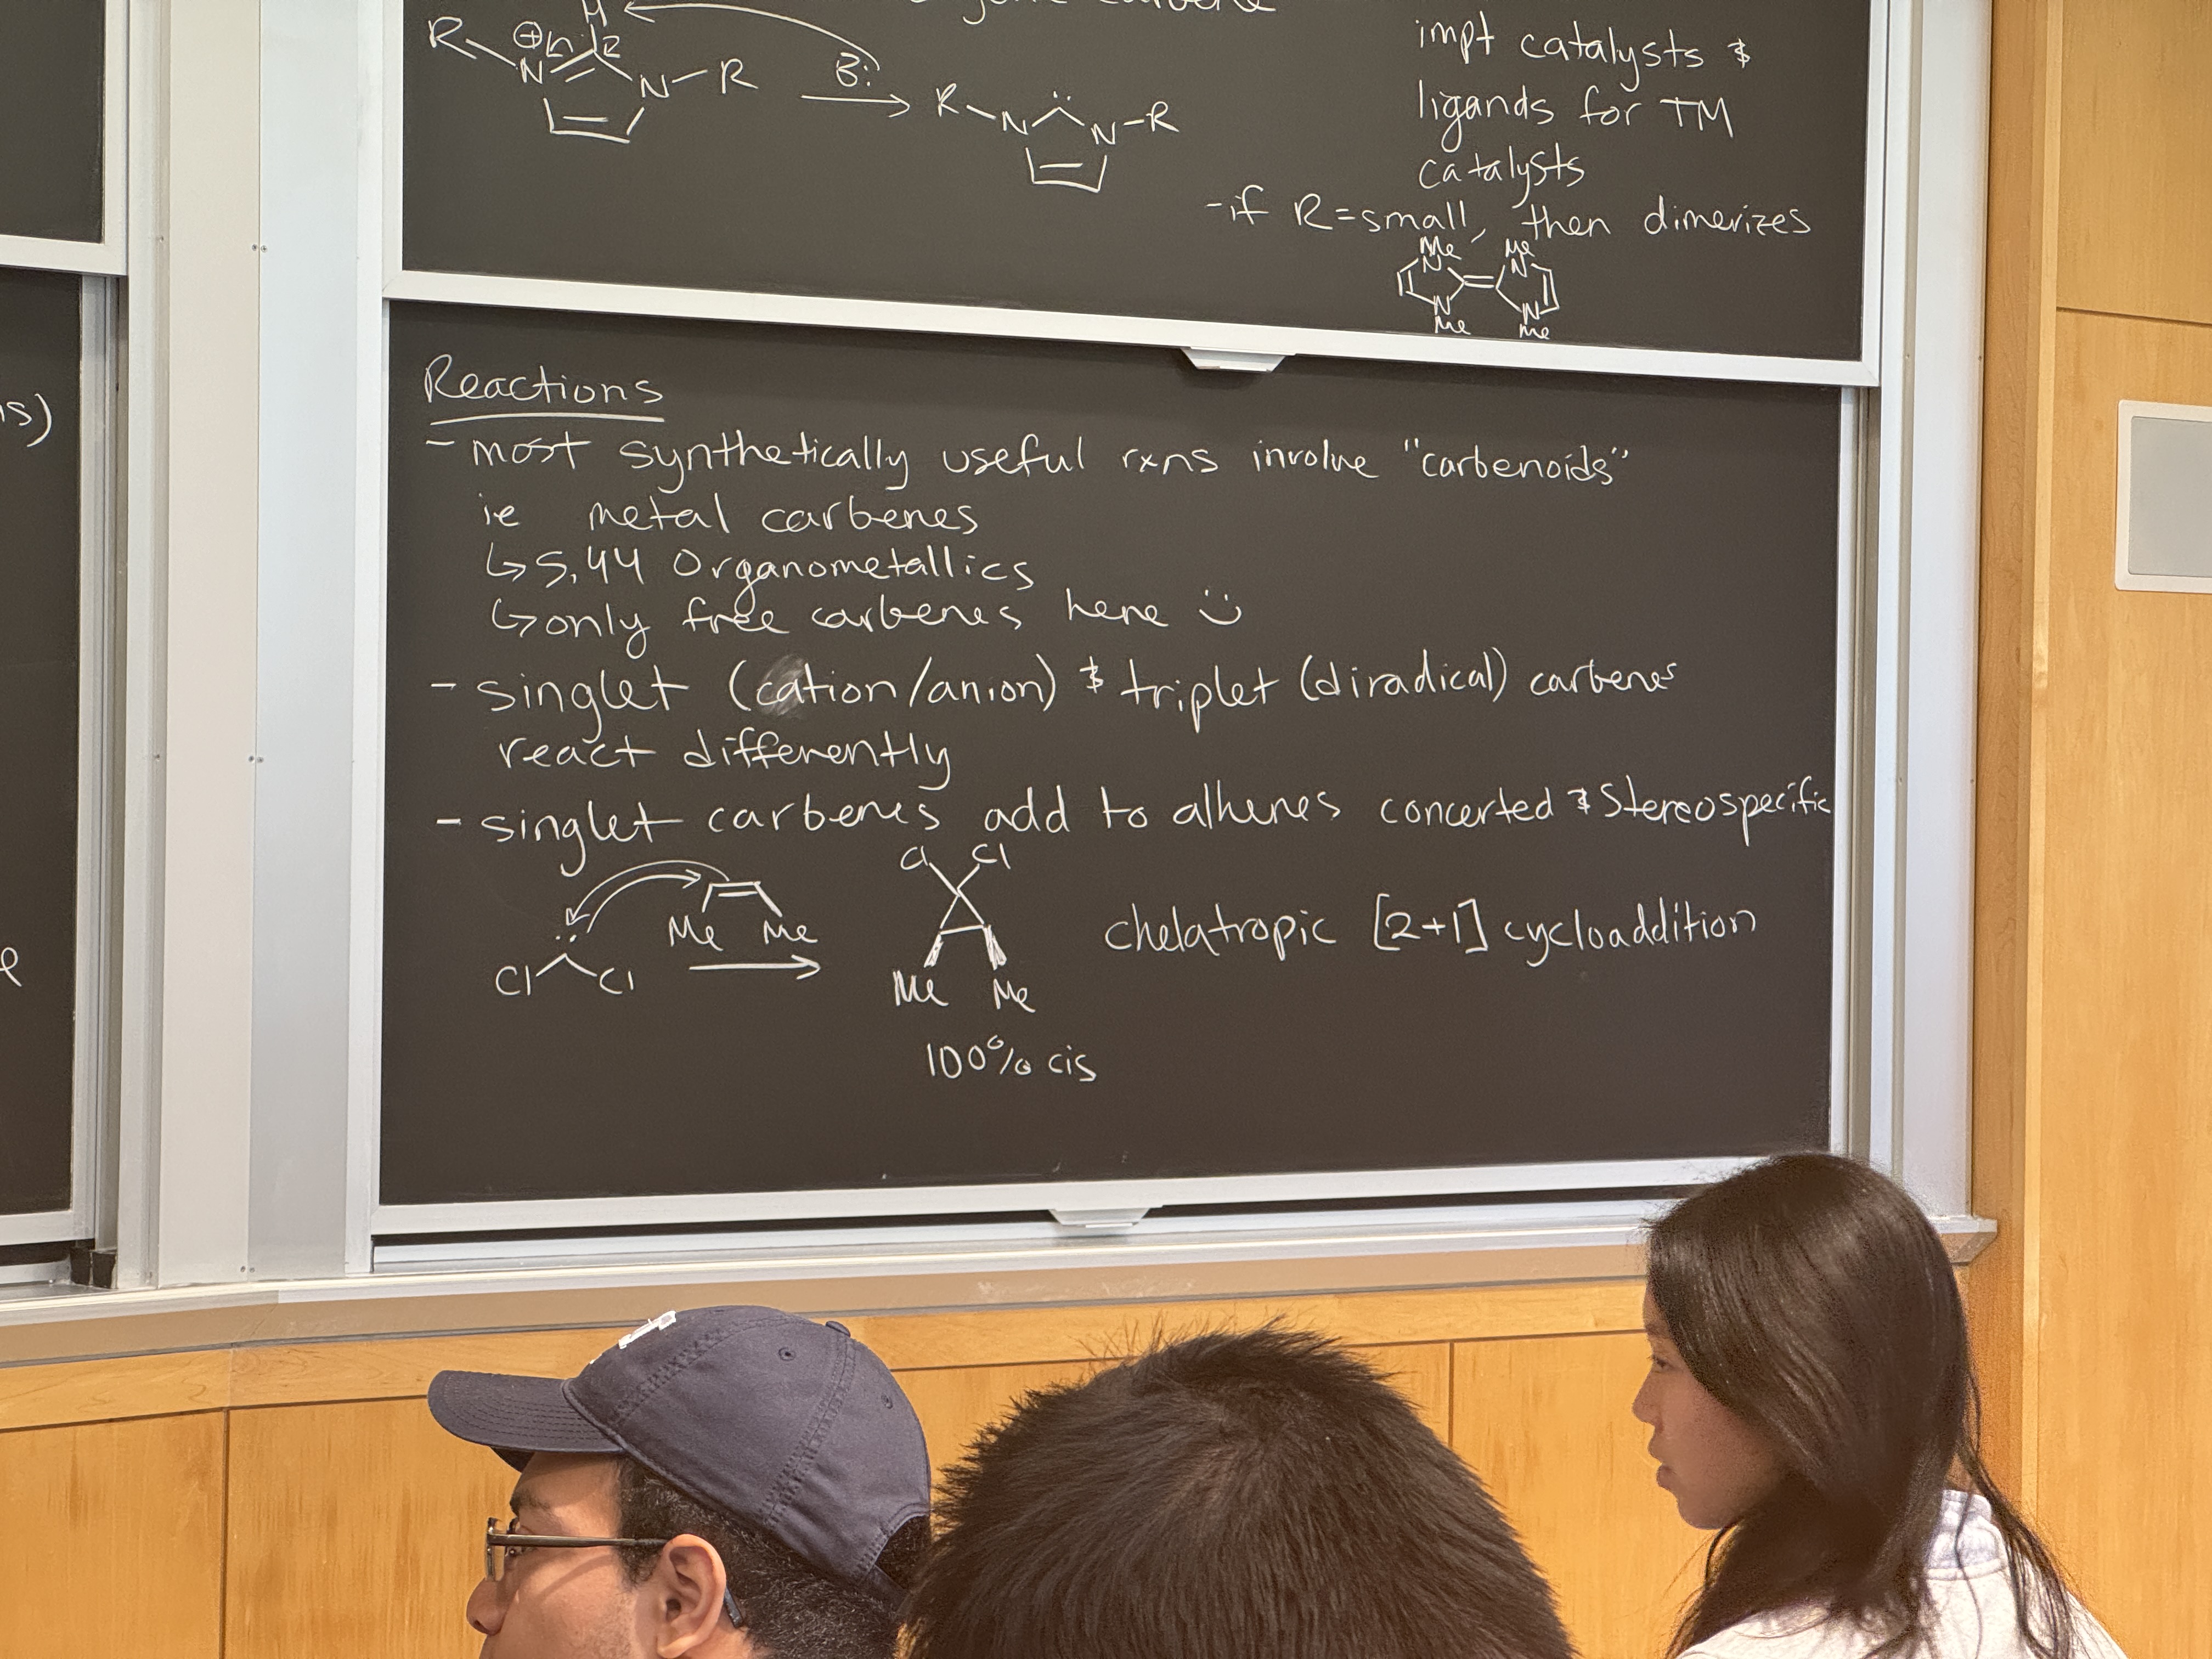 carbene
H
R ⊕ 2
N N-R
B:
R-N N-R
impt catalysts &
ligands for TM
catalysts
-if R=small, then dimerizes
Me Me
N N
N N
Me Me
Reactions
- most synthetically useful rxns involve "carbenoids"
ie metal carbenes
↳ 5.44 Organometallics
↳ only free carbenes here
- singlet (cation/anion) & triplet (diradical) carbenes
react differently
- singlet carbenes add to alkenes concerted & Stereospecific
Cl Cl
Me Me
Cl Cl
chelatropic [2+1] cycloaddition
Me Me
100% cis
is)
e